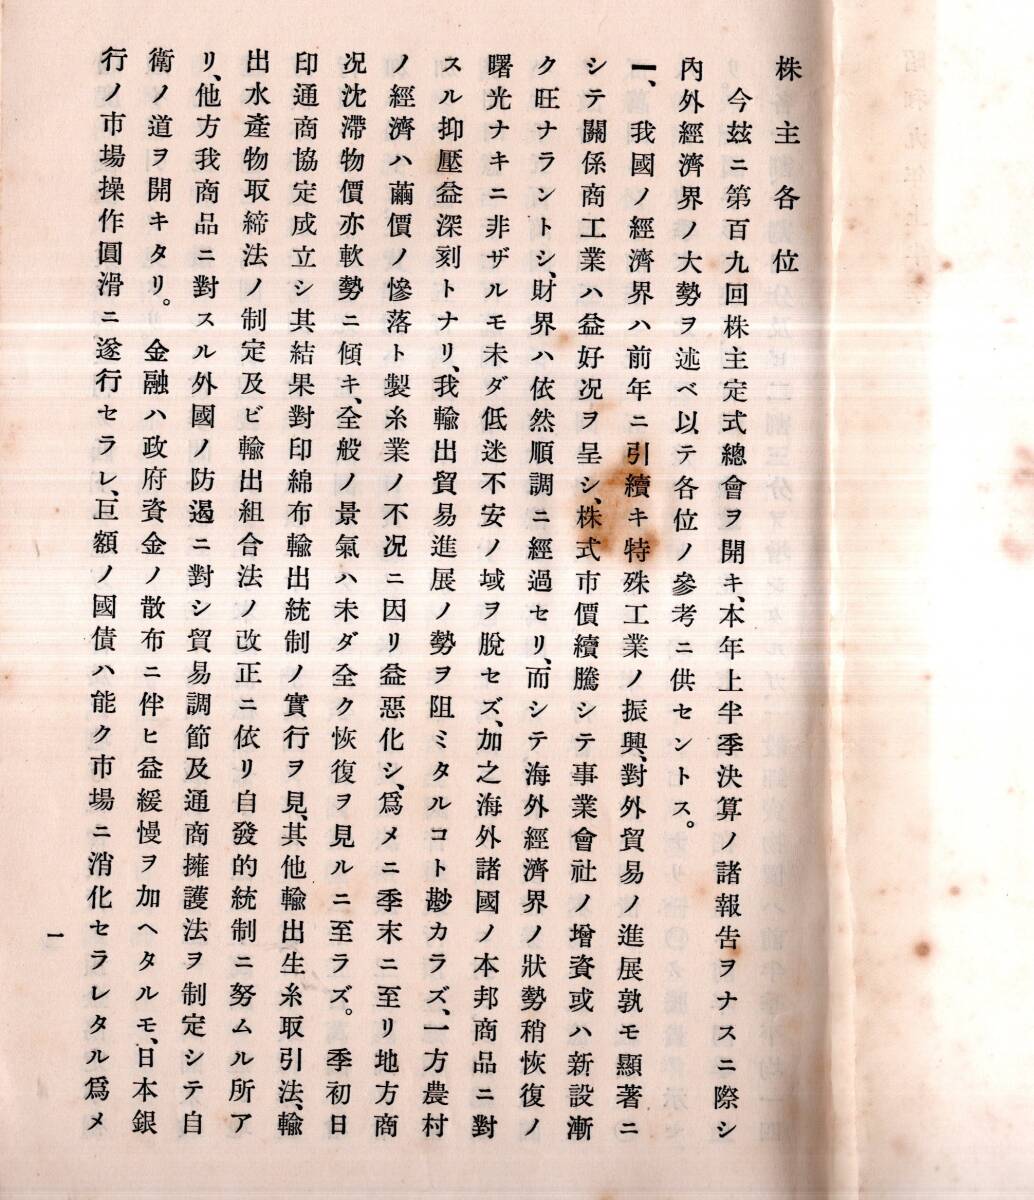 株主各位
今玆ニ第百九回株主定式總會ヲ開キ、本年上半季決算ノ諸報告ヲナスニ際シ
內外經濟界ノ大勢ヲ述ベ以テ各位ノ參考ニ供セントス。
一、我國ノ經濟界ハ前年ニ引續キ特殊工業ノ振興、對外貿易ノ進展孰モ顯著ニ
シテ關係商工業ハ益好況ヲ呈シ、株式市價續騰シテ事業會社ノ增資或ハ新設漸
ク旺ナラントシ、財界ハ依然順調ニ經過セリ、而シテ海外經濟界ノ狀勢稍恢復ノ
曙光ナキニ非ザルモ未ダ低迷不安ノ域ヲ脫セズ、加之海外諸國ノ本邦商品ニ對
スル抑壓益深刻トナリ、我輸出貿易進展ノ勢ヲ阻ミタルコト尠カラズ、一方農村
ノ經濟ハ繭價ノ慘落ト製糸業ノ不況ニ因リ益惡化シ、爲メニ季末ニ至リ地方商
況沈滯物價亦軟勢ニ傾キ、全般ノ景氣ハ未ダ全ク恢復ヲ見ルニ至ラズ。季初日
印通商協定成立シ其結果對印綿布輸出統制ノ實行ヲ見、其他輸出生糸取引法、輸
出水產物取締法ノ制定及ビ輸出組合法ノ改正ニ依リ自發的統制ニ努ムル所ア
リ、他方我商品ニ對スル外國ノ防遏ニ對シ貿易調節及通商擁護法ヲ制定シテ自
衛ノ道ヲ開キタリ。金融ハ政府資金ノ散布ニ伴ヒ益緩慢ヲ加ヘタルモ、日本銀
行ノ市場操作圓滑ニ遂行セラレ、巨額ノ國債ハ能ク市場ニ消化セラレタル爲メ
一